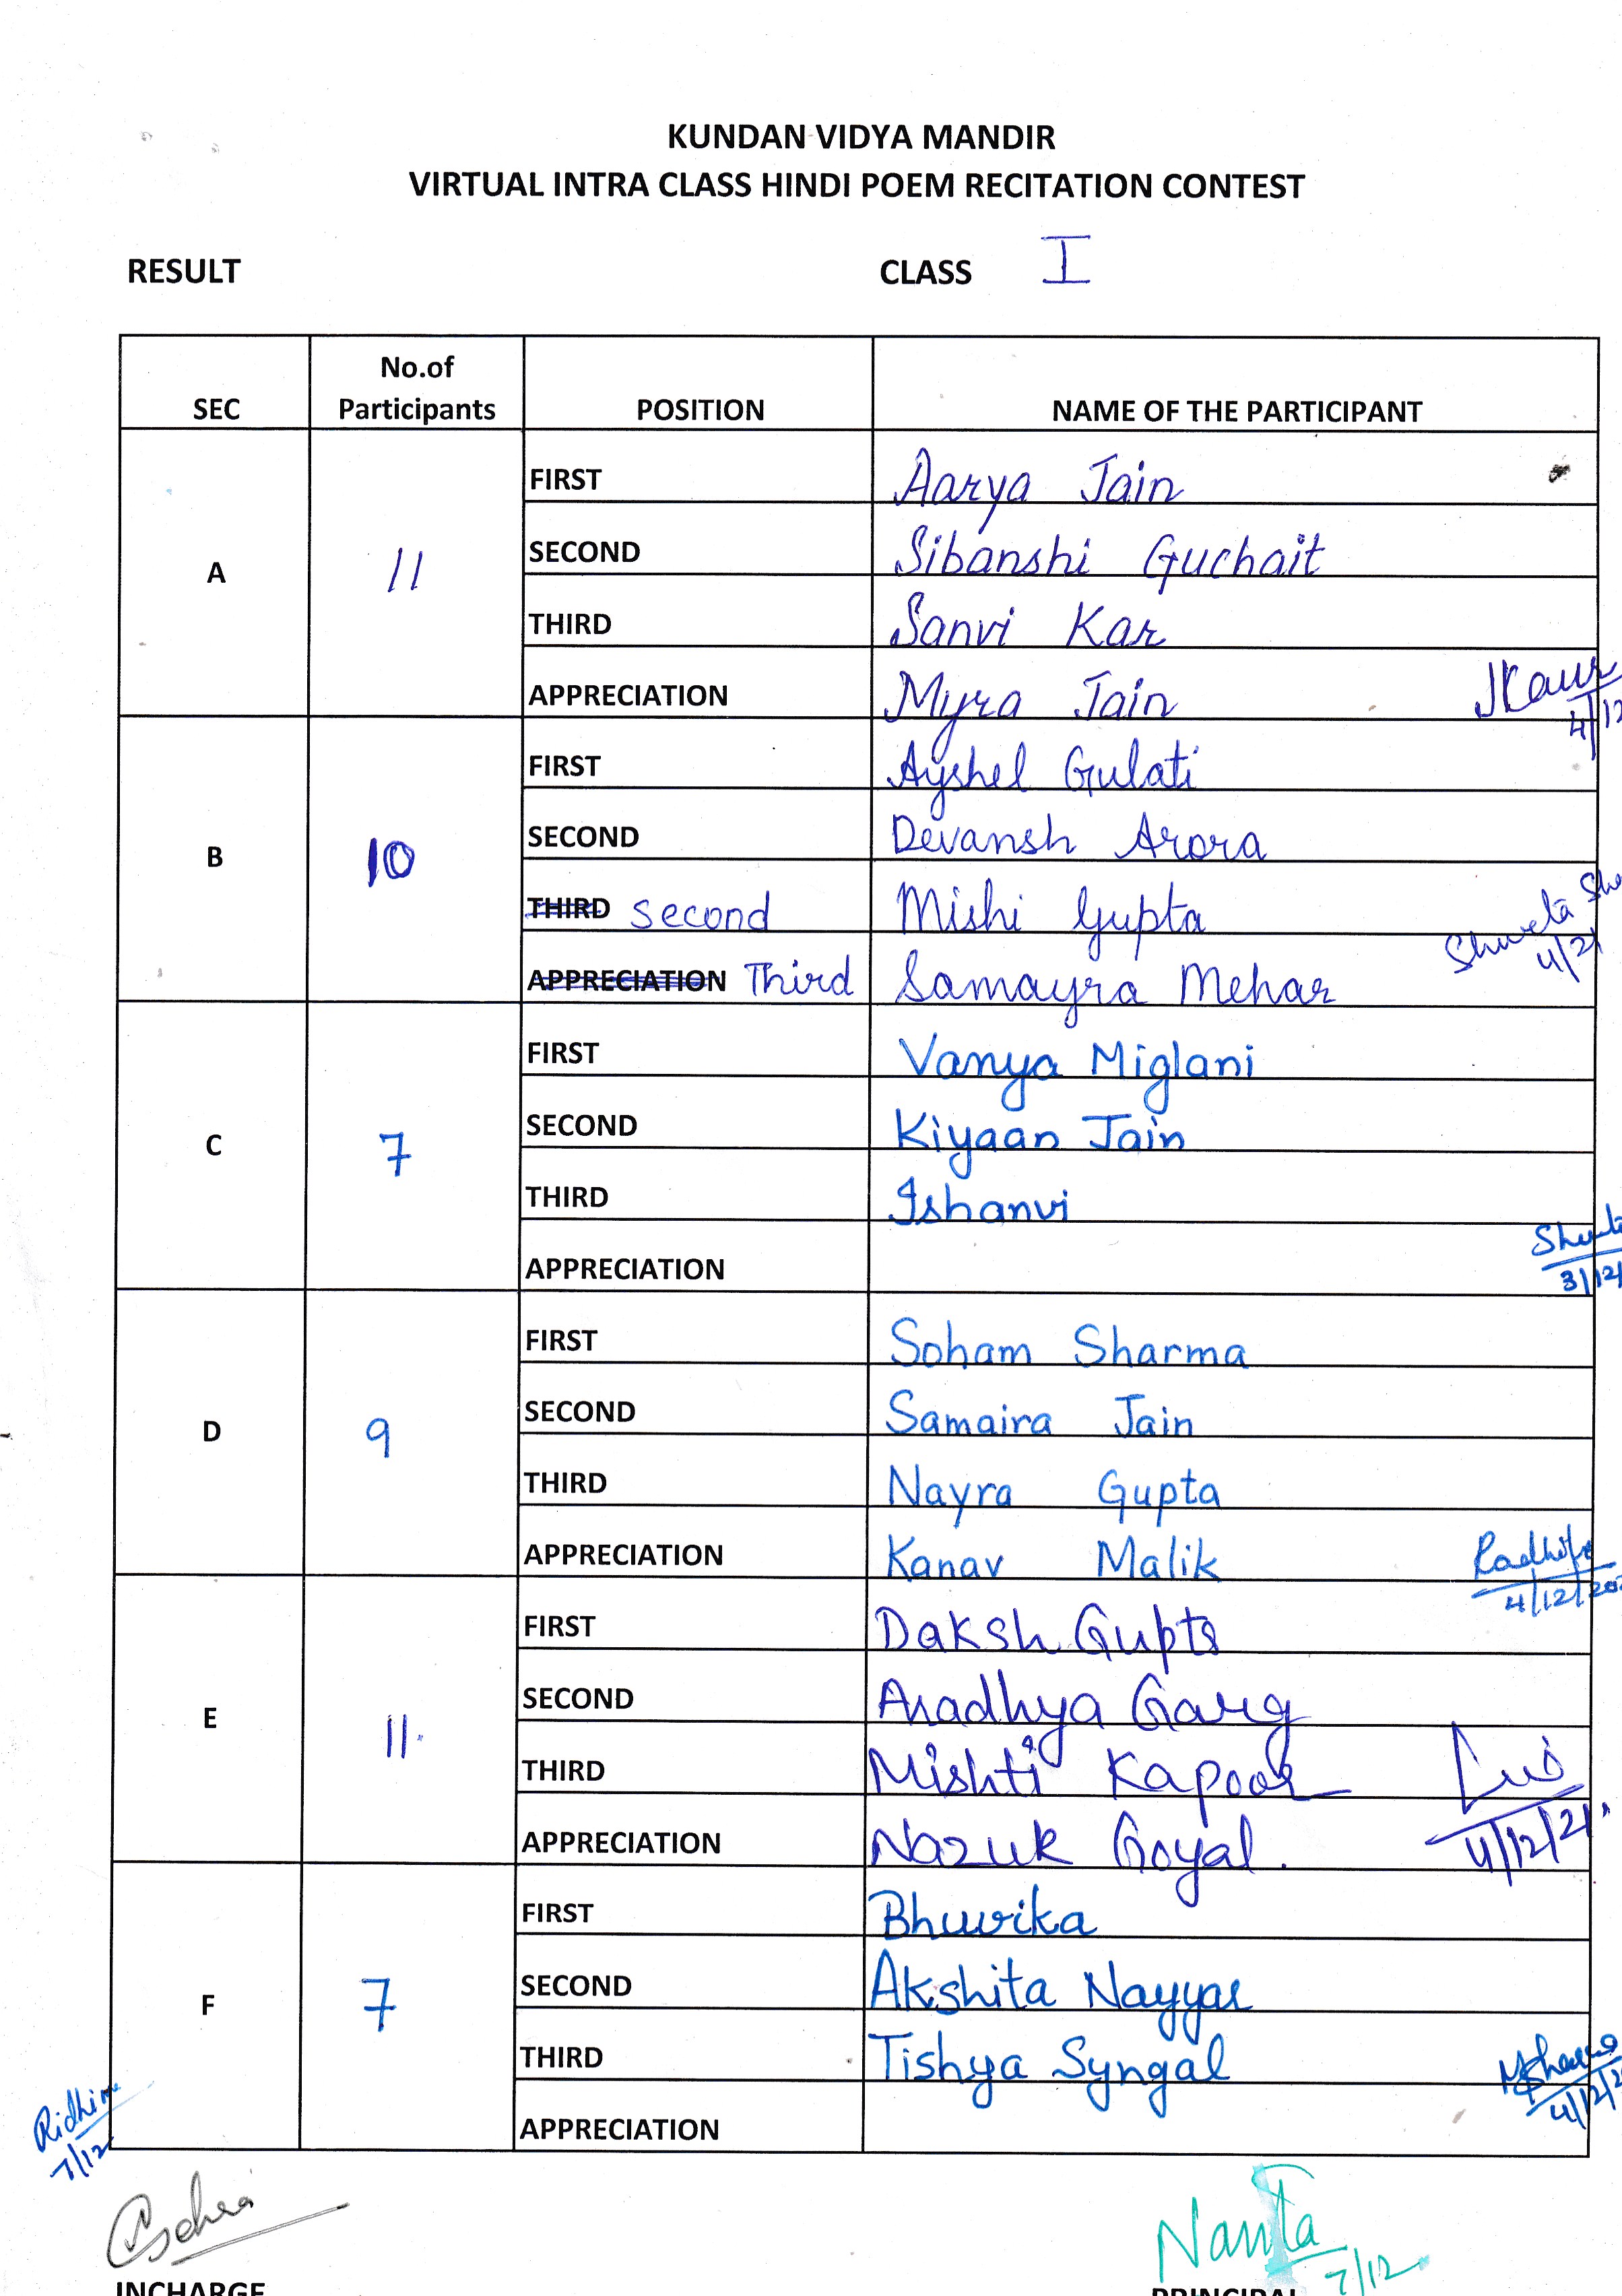 KUNDAN VIDYA MANDIR
VIRTUAL INTRA CLASS HINDI POEM RECITATION CONTEST
RESULT CLASS I
SEC No.of Participants POSITION NAME OF THE PARTICIPANT
A 11
FIRST Aarya Jain
SECOND Sibanshi Guchait
THIRD Sanvi Kar
APPRECIATION Myra Jain
JKaur
4/12
B 10
FIRST Ayshel Gulati
SECOND Devansh Arora
THIRD Second Mishi Gupta
APPRECIATION Third Samayra Mehar
Shweta
4/21
C 7
FIRST Vanya Miglani
SECOND Kiyaan Jain
THIRD Ishanvi
APPRECIATION
3/12/
D 9
FIRST Soham Sharma
SECOND Samaira Jain
THIRD Nayra Gupta
APPRECIATION Kanav Malik
Radhika
4/12/20
E 11
FIRST Daksh Gupta
SECOND Aradhya Garg
THIRD Mishti Kapoor
APPRECIATION Nazuk Goyal.
4/12/21.
F 7
FIRST Bhuvika
SECOND Akshita Nayyar
THIRD Tishya Syngal
APPRECIATION
4/12/2
Ridhima
7/12
7/12
INCHARGE PRINCIPAL